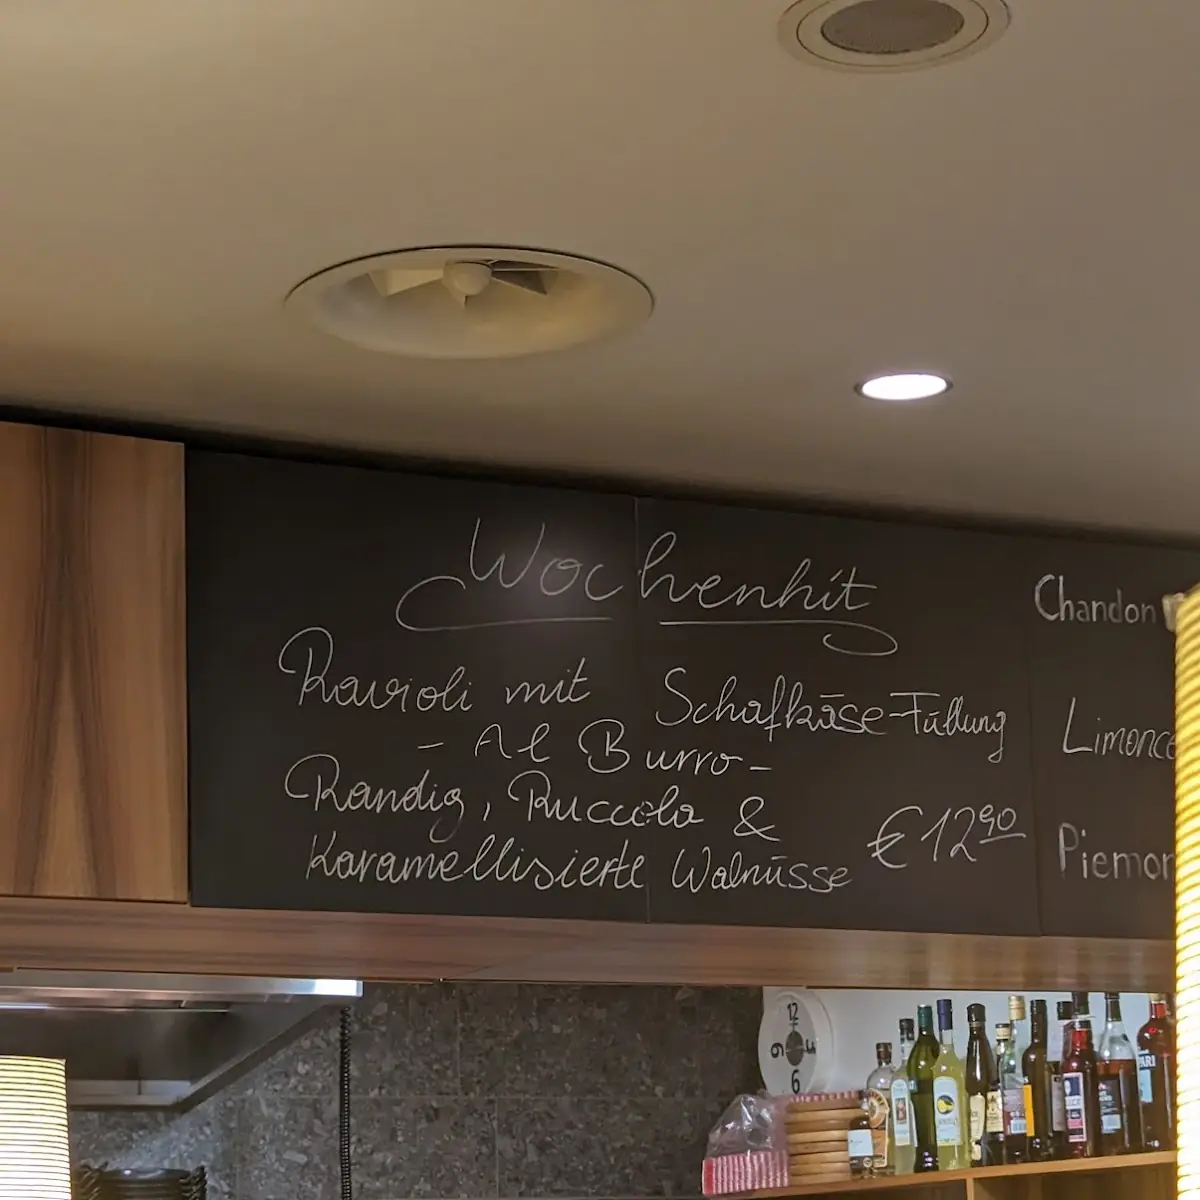 Wochenhit
Ravioli mit Schafkäse-Füllung
- Al Burro -
Randig, Ruccola &
Karamellisierte Walnüsse €12⁹⁰
Chandon
Limonce
Piemon
12
6
9